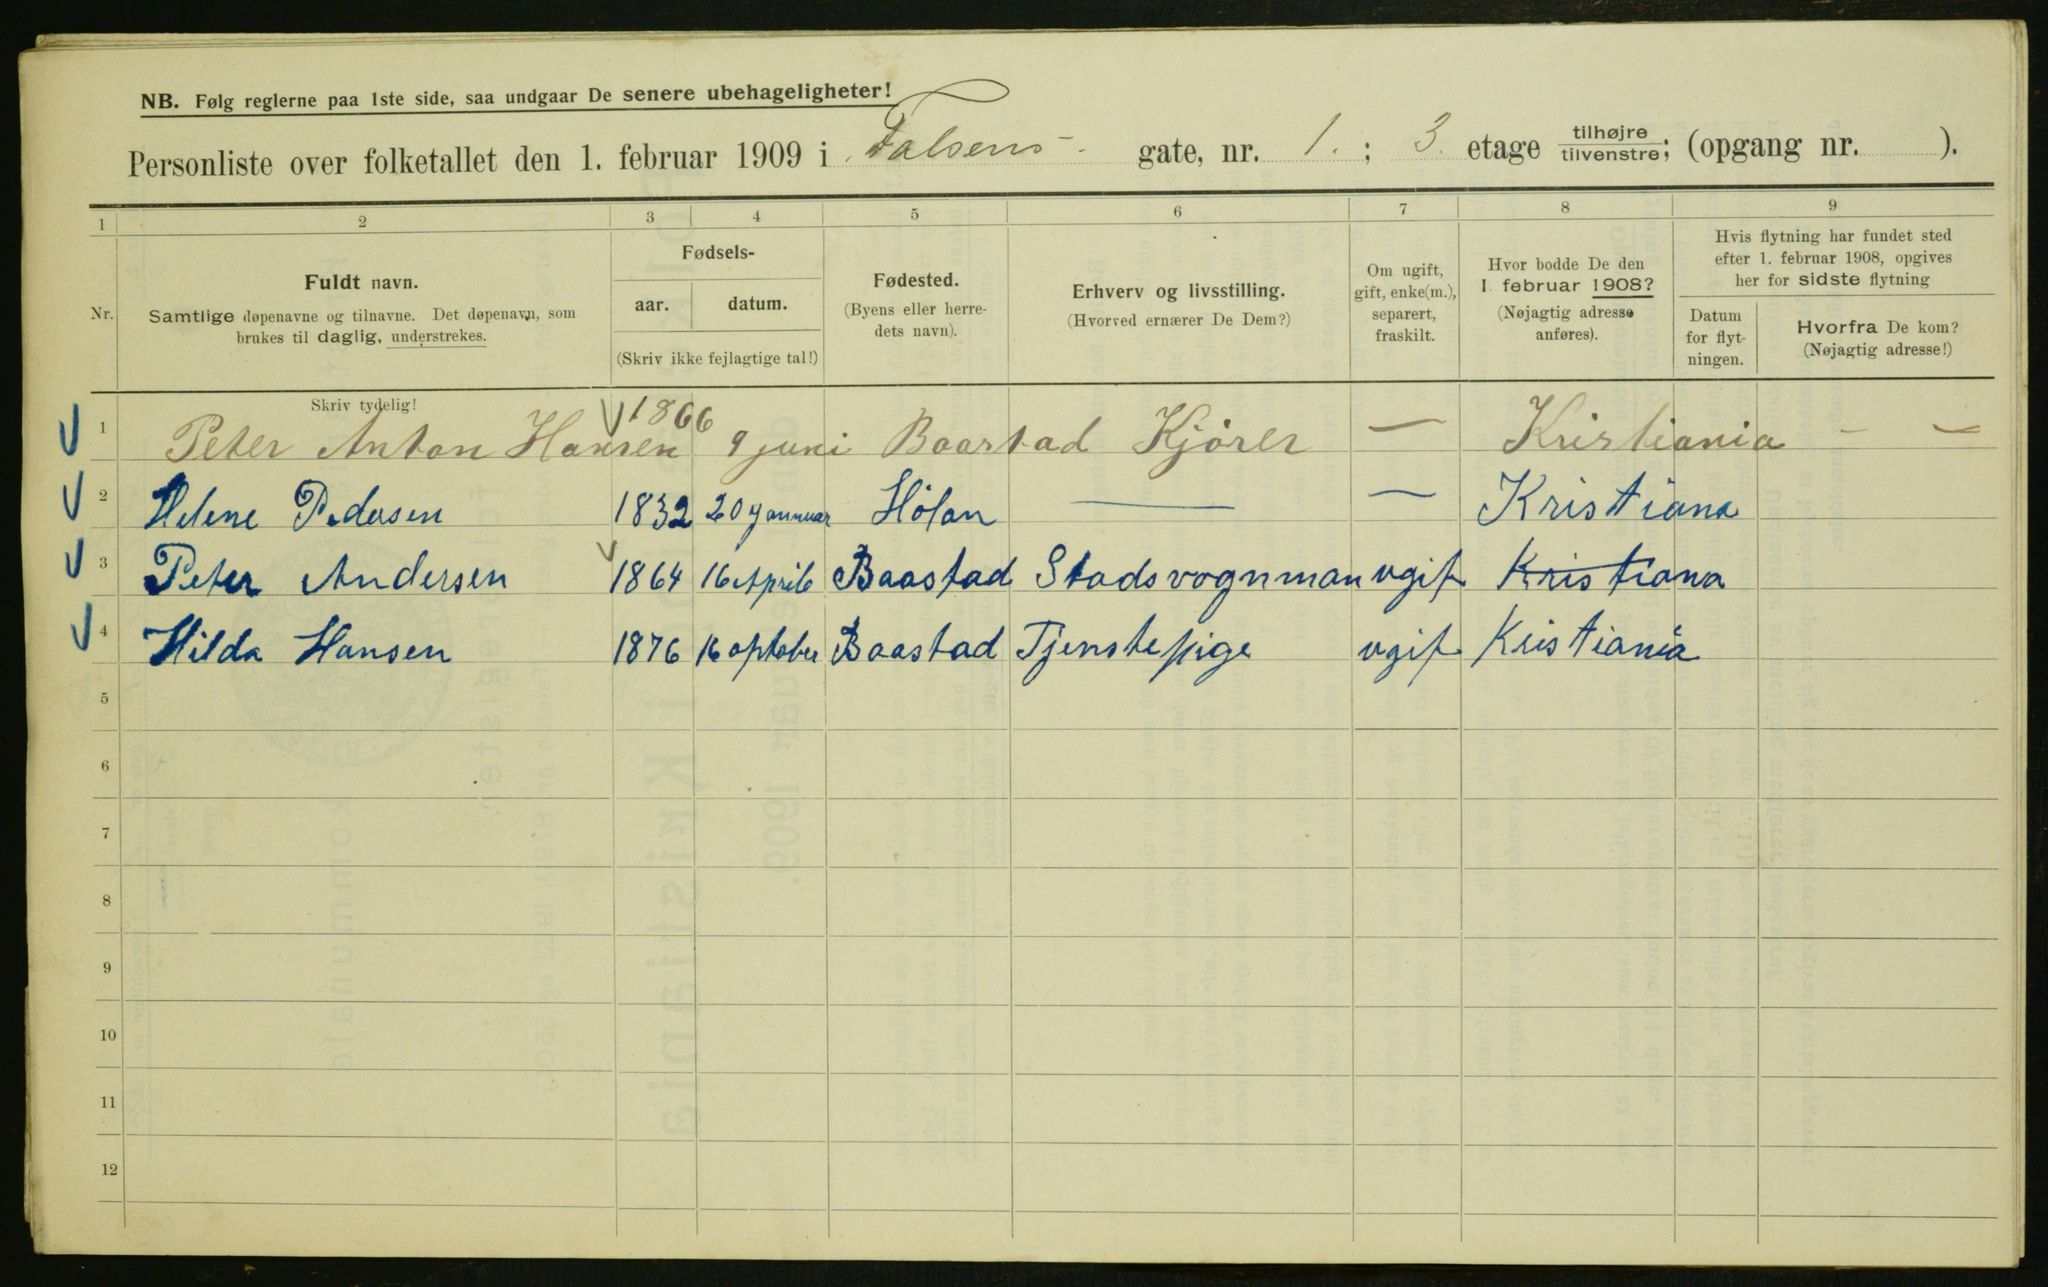 NB. Følg reglerne paa 1ste side, saa undgaar De senere ubehageligheter!
Personliste over folketallet den 1. februar 1909 i Falsens gate, nr. 1. ; 3. etage tilhøjre tilvenstre; (opgang nr. ).
1 2 3 4 5 6 7 8 9
Nr.
Fuldt navn.
Samtlige døpenavne og tilnavne. Det døpenavn, som
brukes til daglig, understrekes.
Skriv tydelig!
Fødsels-
aar. datum.
(Skriv ikke fejlagtige tal!)
Fødested.
(Byens eller herre-
dets navn).
Erhverv og livsstilling.
(Hvorved ernærer De Dem?)
Om ugift,
gift, enke(m.),
separert,
fraskilt.
Hvor bodde De den
1. februar 1908?
(Nøjagtig adresse
anføres).
Hvis flytning har fundet sted
efter 1. februar 1908, opgives
her for sidste flytning
Datum
for flyt-
ningen.
Hvorfra De kom?
(Nøjagtig adresse!)
1 Peter Anton Hansen 1866 9 juni Baastad Kjörer — Kristiania - -
2 Helene Pedersen 1832 20 januar Hölan — — Kristiana
3 Peter Andersen 1864 16 April Baastad Stadsvognman ugift Kristiana
4 Hilda Hansen 1876 16 optober Baastad Tjenstepige ugift Kristiania
5
6
7
8
9
10
11
12